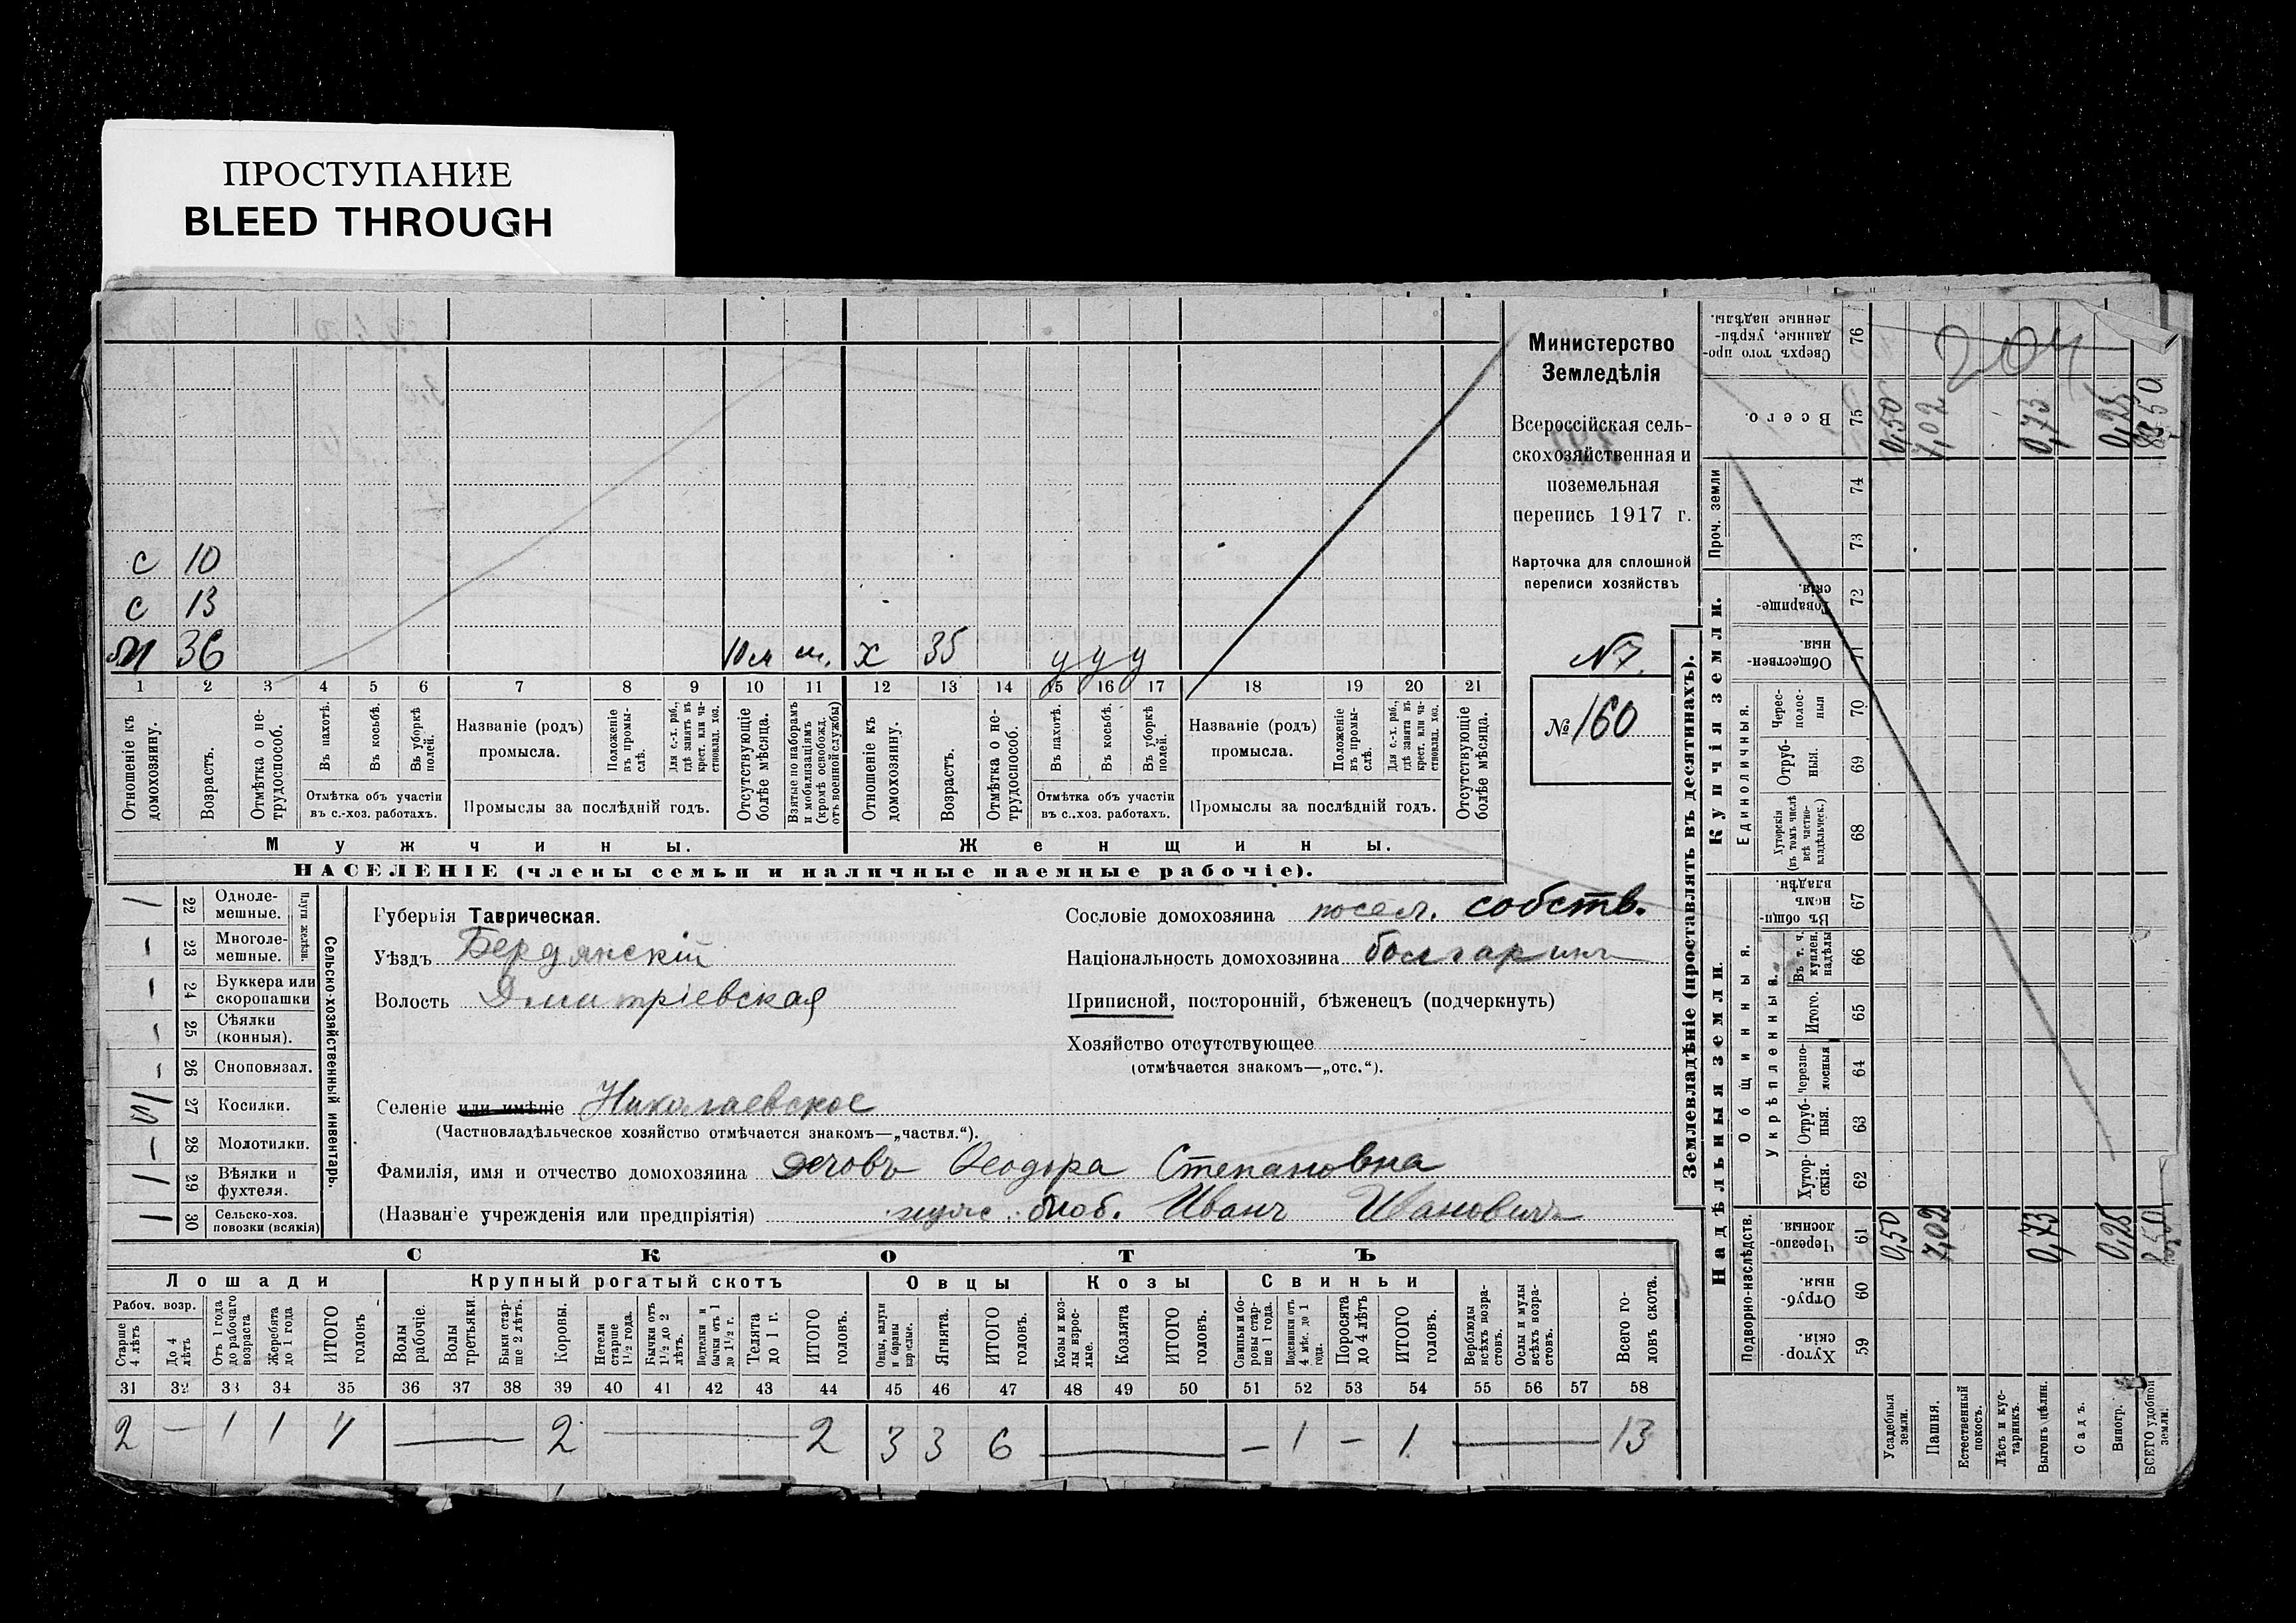 ПРОСТУПАНИЕ
BLEED THROUGH
с 10
с 13
м 36 10 м м. х 35 у у у
1 2 3 4 5 6 7 8 9 10 11 12 13 14 15 16 17 18 19 20 21
Отношеніе къ домохозяину.
Возрастъ.
Отмѣтка о нетрудоспособ.
Въ пахотѣ.
Въ косьбѣ.
Въ уборкѣ полей.
Отмѣтка объ участіи
въ с.-хоз. работахъ.
Названіе (родъ)
промысла.
Положеніе въ промыслѣ.
Для с.-х. раб., гдѣ занятъ въ крест. или частновлад. хоз.
Промыслы за послѣдній годъ.
Отсутствующіе болѣе мѣсяца.
Взятые по наборамъ и мобилизаціямъ (кромѣ освобожд. отъ военной службы)
Отношеніе къ домохозяину.
Возрастъ.
Отмѣтка о нетрудоспособ.
Въ пахотѣ.
Въ косьбѣ.
Въ уборкѣ полей.
Отмѣтка объ участіи
въ с.-хоз. работахъ.
Названіе (родъ)
промысла.
Положеніе въ промыслѣ.
Для с.-х. раб., гдѣ занята въ крест. или частновлад. хоз.
Промыслы за послѣдній годъ.
Отсутствующіе болѣе мѣсяца.
Мужчины. Женщины.
НАСЕЛЕНІЕ (члены семьи и наличные наемные рабочіе).
Министерство
Земледѣлія
Всероссійская сель-
скохозяйственная и
поземельная
перепись 1917 г.
Карточка для сплошной
переписи хозяйствъ
№ 7.
№ 160
Сельско-хозяйственный инвентарь.
Плуги желѣзн.
1 22 Одноле-
мешные.
– 23 Многоле-
мешные.
– 24 Буккера или
скоропашки
– 25 Сѣялки
(конныя).
– 26 Сноповязал.
27 Косилки.
– 28 Молотилки.
1 29 Вѣялки и
фухтеля.
1 30 Сельско-хоз.
повозки (всякія)
Губернія Таврическая.
Уѣздъ Бердянскій
Волость Дмитріевская
Сословіе домохозяина посел. собств.
Національность домохозяина болгаринъ
Приписной, посторонній, бѣженецъ (подчеркнуть)
Хозяйство отсутствующее
(отмѣчается знакомъ—„отс.“).
Селеніе или имѣніе Николаевское
(Частновладѣльческое хозяйство отмѣчается знакомъ—„частвл.“).
Фамилія, имя и отчество домохозяина Ѳеодора Степановна
(Названіе учрежденія или предпріятія) моб. Иванъ Ивановичъ
СКОТЪ
Лошади Крупный рогатый скотъ Овцы Козы Свиньи
Рабоч. возр.
Старше 4 лѣтъ
До 4 лѣтъ
Отъ 1 года до рабочаго возраста
Жеребята до 1 года
ИТОГО головъ
Волы рабочіе.
Волы третьяки.
Быки старше 2 лѣтъ.
Коровы.
Нетели старше 1½ года.
Бычки отъ 1½ до 2 лѣтъ.
Подтелки и бычки отъ 1 до 1½ г.
Телята до 1 г.
ИТОГО головъ.
Овцы, валухи и бараны взрослые.
Ягнята.
ИТОГО головъ.
Козы и козлы взрослые.
Козлята
ИТОГО головъ.
Свиньи и боровы старше 1 года.
Подсвинки отъ 4 мѣс. до 1 года.
Поросята до 4 лѣтъ
ИТОГО головъ.
Верблюды всѣхъ возрастовъ.
Ослы и мулы всѣхъ возрастовъ.
Всего головъ скота.
31 32 33 34 35 36 37 38 39 40 41 42 43 44 45 46 47 48 49 50 51 52 53 54 55 56 57 58
2 — 1 1 4 — 2 — 2 3 3 6 — – 1 – 1 — 13
Землевладѣніе (проставлять въ десятинахъ).
Сверхъ того проданные, укрѣпленные надѣлы. 76
204
Всего. 75 0,50 7,02 0,73 0,25 8,50
Проч. земли 74 73
Купчія земли.
Товарищескія. 72
Общественныя. 71
Единоличныя.
Черезполосныя 70
Отрубныя. 69
Хуторскія (въ томъ числѣ всѣ частновладѣльческ.) 68
Надѣльныя земли.
Общинныя.
Въ общинномъ владѣн. 67
Укрѣпленныя.
Въ т. ч. куплен. надѣлы 66
Итого. 65
Черезполосныя 64
Отрубныя. 63
Хуторскія. 62
Подворно-наслѣдств.
Черезполосныя. 61 0,50 7,02 0,73 0,25 8,50
Отрубныя. 60
Хуторскія. 59
Усадебныя земли.
Пашня.
Естественный покосъ.
Лѣсъ и кустарникъ.
Выгонъ цѣлин.
Садъ.
Виногр.
ВСЕГО удобной земли.